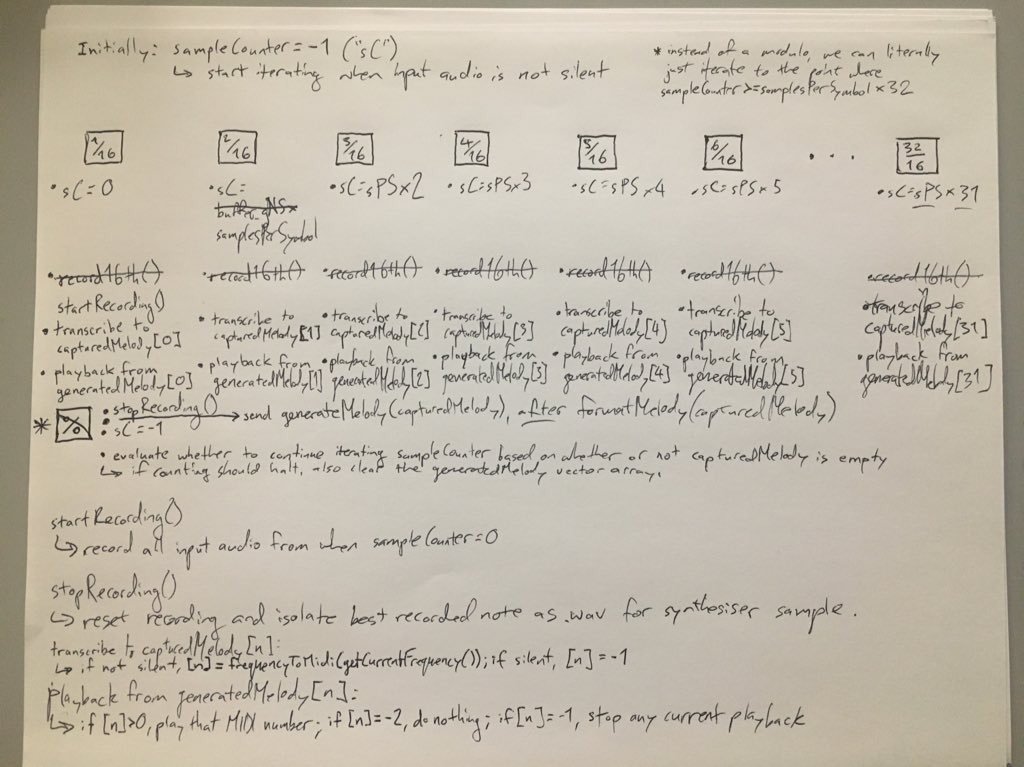 Initially: sampleCounter = -1 ("sC")
↳ start iterating when input audio is not silent
* instead of a modulo, we can literally
just iterate to the point where
sampleCounter >= samplesPerSymbol × 32
1/16 2/16 3/16 4/16 5/16 6/16 . . . 32/16
• sC = 0 • sC = • sC = sPS × 2 • sC = sPS × 3 • sC = sPS × 4 • sC = sPS × 5 • sC = sPS × 31
samplesPerSymbol
• record16th() • record16th() • record16th() • record16th() • record16th() • record16th() • record16th()
startRecording()
• transcribe to • transcribe to • transcribe to • transcribe to • transcribe to • transcribe to • transcribe to
capturedMelody[0] capturedMelody[1] capturedMelody[2] capturedMelody[3] capturedMelody[4] capturedMelody[5] capturedMelody[31]
• playback from • playback from • playback from • playback from • playback from • playback from • playback from
generatedMelody[0] generatedMelody[1] generatedMelody[2] generatedMelody[3] generatedMelody[4] generatedMelody[5] generatedMelody[31]
* 0/0 • stopRecording() → send generateMelody(capturedMelody), after formatMelody(capturedMelody)
• sC = -1
• evaluate whether to continue iterating sampleCounter based on whether or not capturedMelody is empty
↳ if counting should halt, also clear the generatedMelody vector array.
startRecording()
↳ record all input audio from when sampleCounter = 0
stopRecording()
↳ reset recording and isolate best recorded note as .wav for synthesiser sample.
transcribe to capturedMelody[n]:
↳ if not silent, [n] = frequencyToMidi(getCurrentFrequency()); if silent, [n] = -1
playback from generatedMelody[n]:
↳ if [n] >0, play that MIDI number; if [n] = -2, do nothing; if [n] = -1, stop any current playback